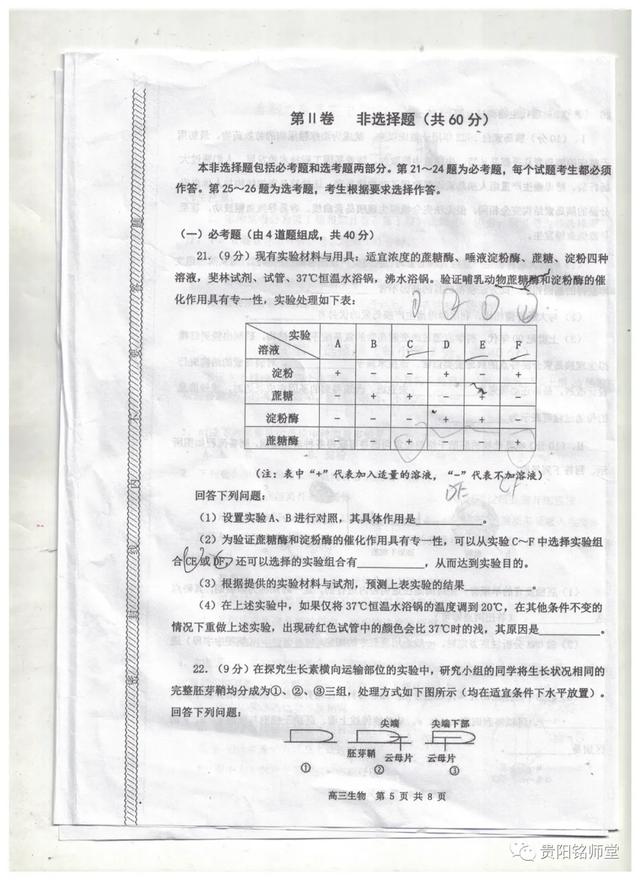 第Ⅱ卷 非选择题（共60分）
本非选择题包括必考题和选考题两部分。第21～24题为必考题，每个试题考生都必须
作答。第25～26题为选考题，考生根据要求选择作答。
（一）必考题（由4道题组成，共40分）
21.（9分）现有实验材料与用具：适宜浓度的蔗糖酶、唾液淀粉酶、蔗糖、淀粉四种
溶液，斐林试剂、试管、37℃恒温水浴锅，沸水浴锅。验证哺乳动物蔗糖酶和淀粉酶的催
化作用具有专一性，实验处理如下表：
实验 溶液 A B C D E F
淀粉 + - - + - +
蔗糖 - + + - + -
淀粉酶 - - - + + -
蔗糖酶 - - + - - +
（注：表中“+”代表加入适量的溶液，“-”代表不加溶液）
回答下列问题：
（1）设置实验A、B进行对照，其具体作用是 。
（2）为验证蔗糖酶和淀粉酶的催化作用具有专一性，可以从实验C～F中选择实验组
合CE或DF，还可以选择的实验组合有 ，从而达到实验目的。
（3）根据提供的实验材料与试剂，预测上表实验的结果 。
（4）在上述实验中，如果仅将37℃恒温水浴锅的温度调到20℃，在其他条件不变的
情况下重做上述实验，出现砖红色试管中的颜色会比37℃时的浅，其原因是 。
22.（9分）在探究生长素横向运输部位的实验中，研究小组的同学将生长状况相同的
完整胚芽鞘均分成为①、②、③三组，处理方式如下图所示（均在适宜条件下水平放置）。
回答下列问题：
尖端 尖端下部
胚芽鞘 云母片 云母片
① ② ③
高三生物 第5页共8页
贵阳铭师堂